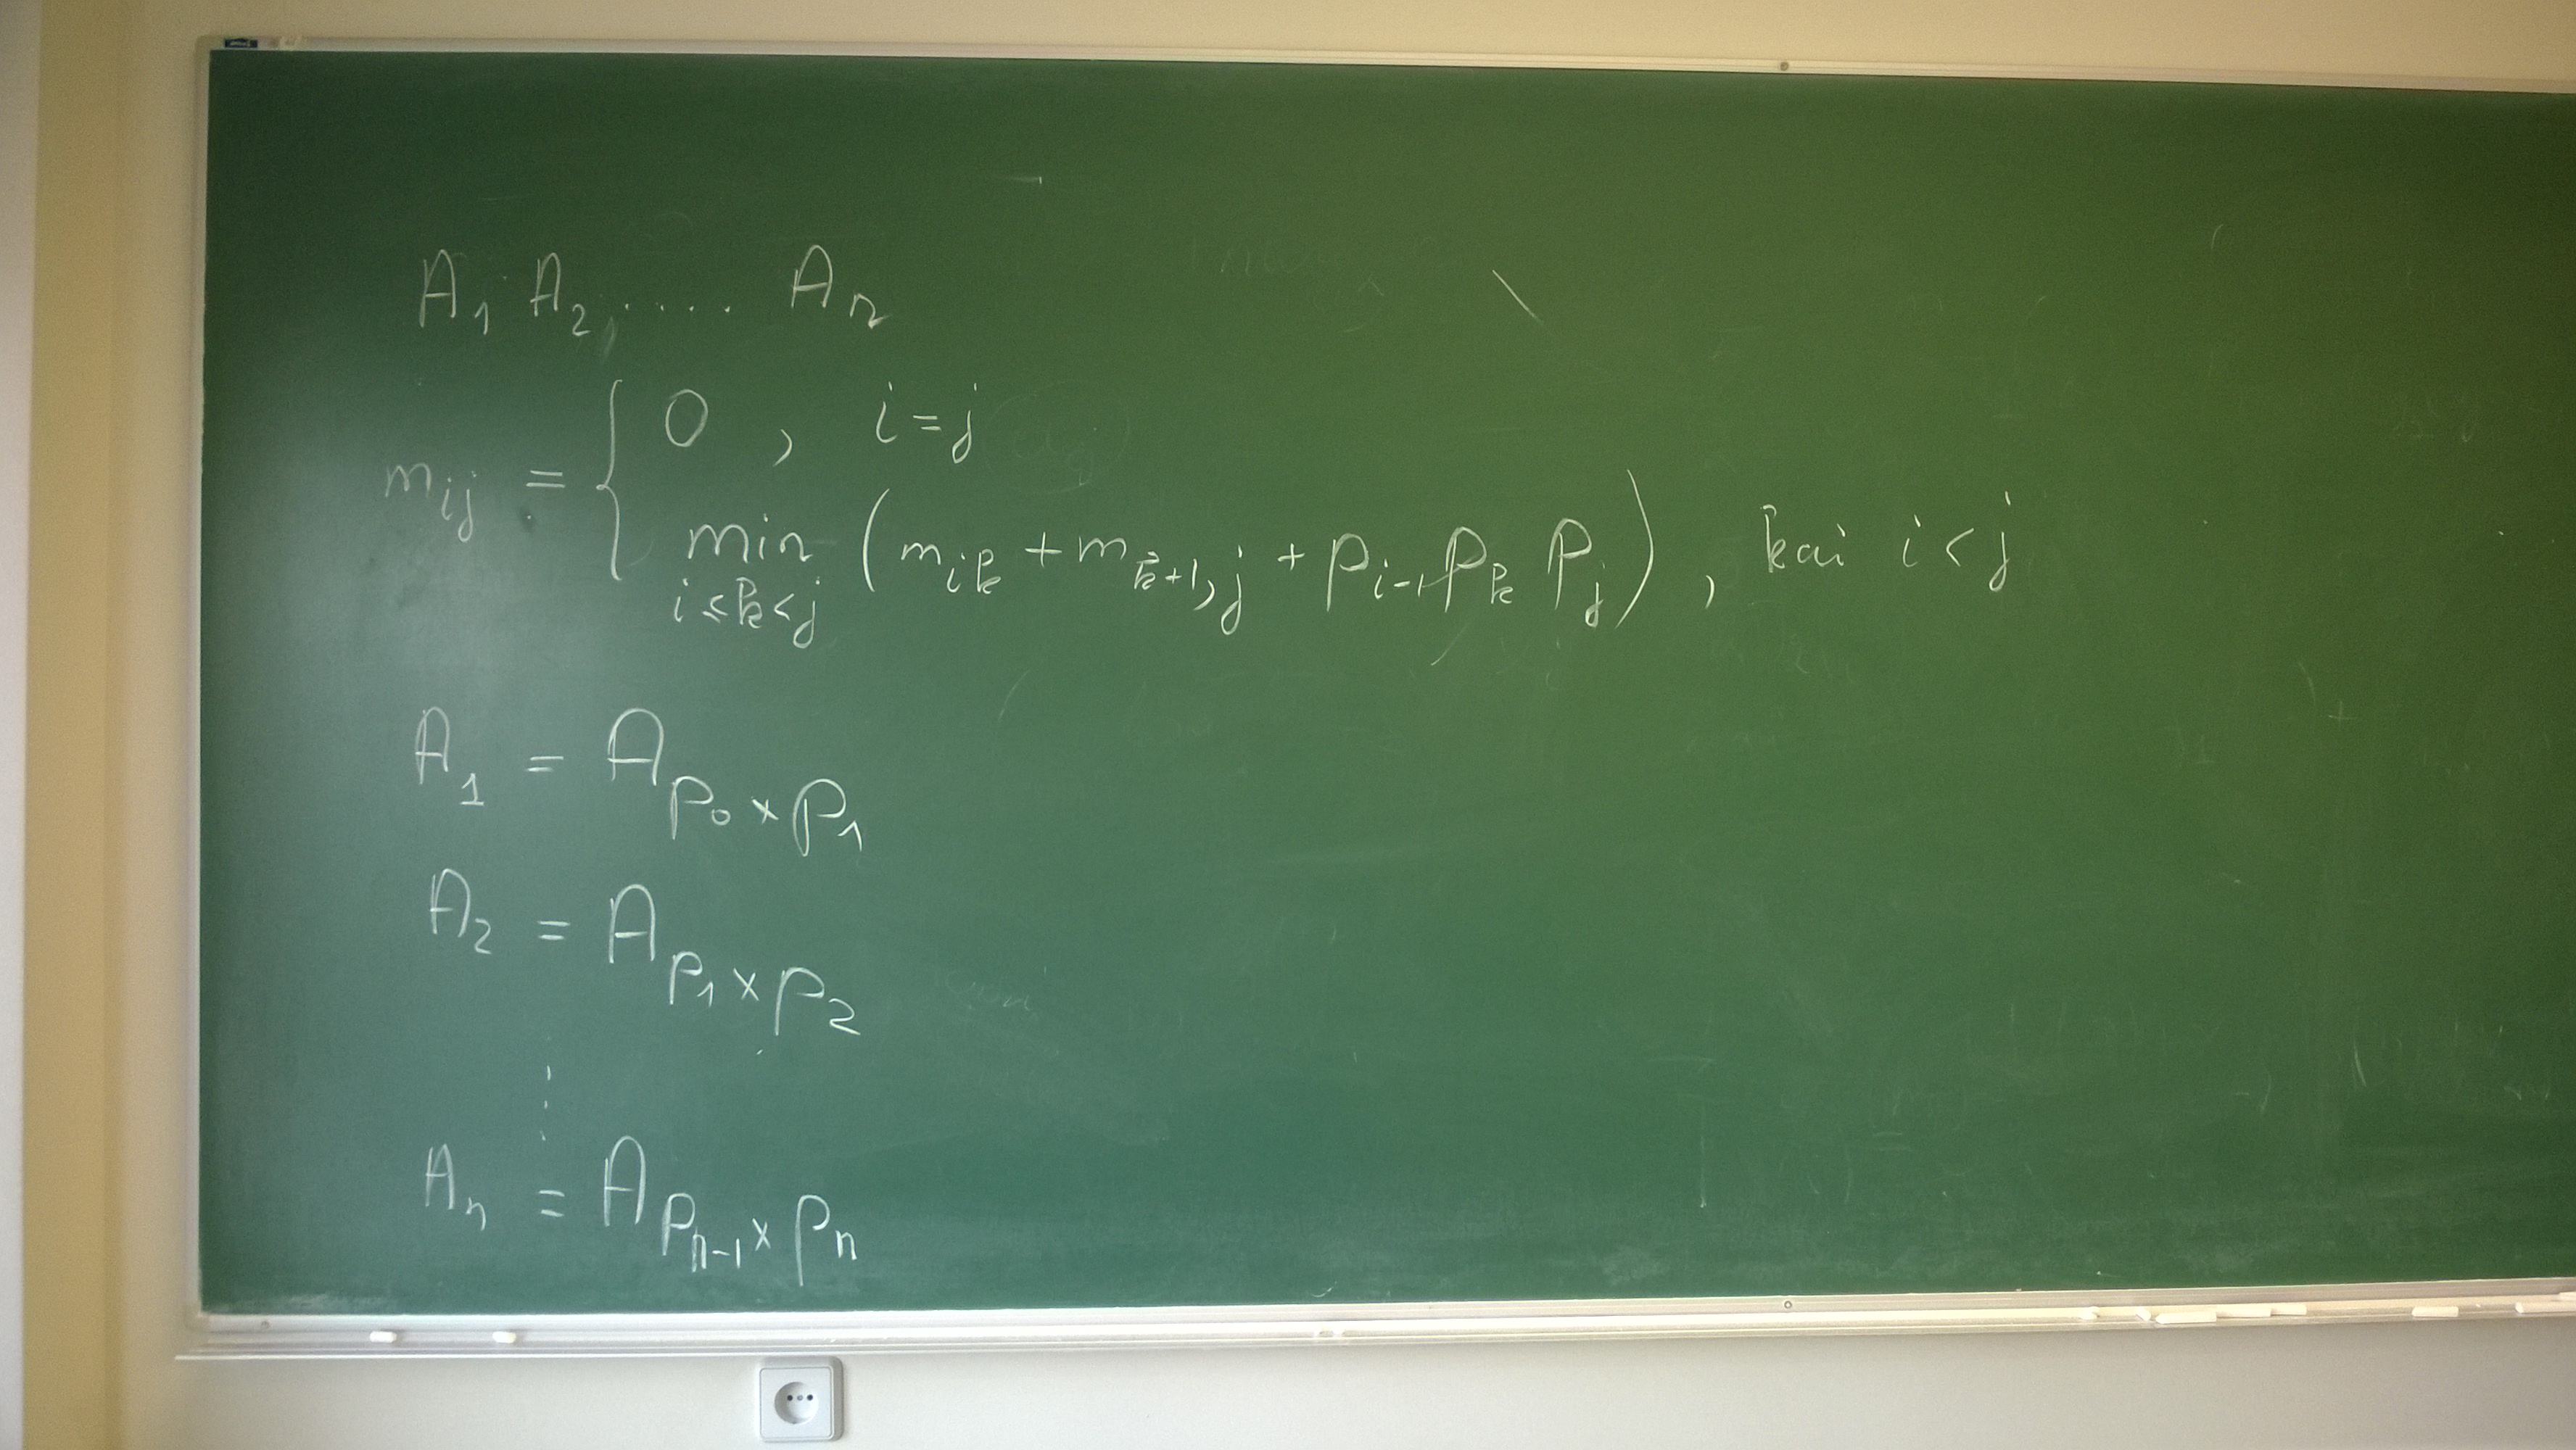 A₁ A₂, ..... Aₙ
mᵢⱼ = { 0 , i = j
min i≤k<j (mᵢₖ + mₖ₊₁,ⱼ + pᵢ₋₁ pₖ pⱼ) , kai i < j
A₁ = A p₀ × p₁
A₂ = A p₁ × p₂
⋮
Aₙ = A pₙ₋₁ × pₙ